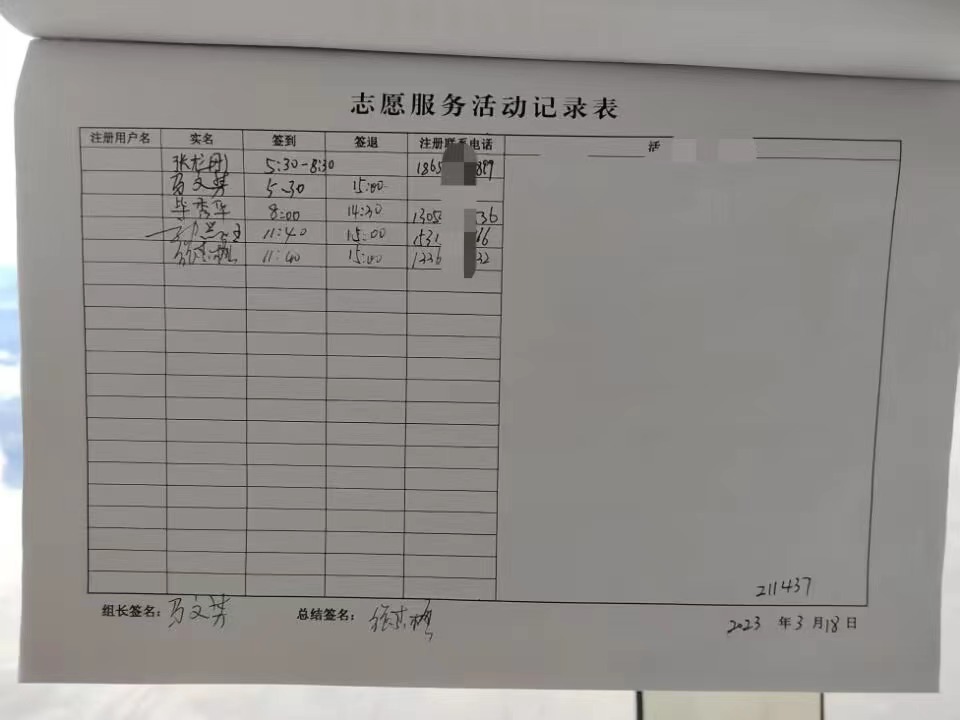 志愿服务活动记录表
注册用户名 实名 签到 签退 注册联系电话 活
张 5:30-8:30 1865 899
马文芳 5.30 15:00
毕秀华 8:00 14:30 1305 36
11:40 15:00 1531 66
11:40 15:00 1336 32
211437
组长签名: 马文芳 总结签名:
2023 年 3 月 18 日